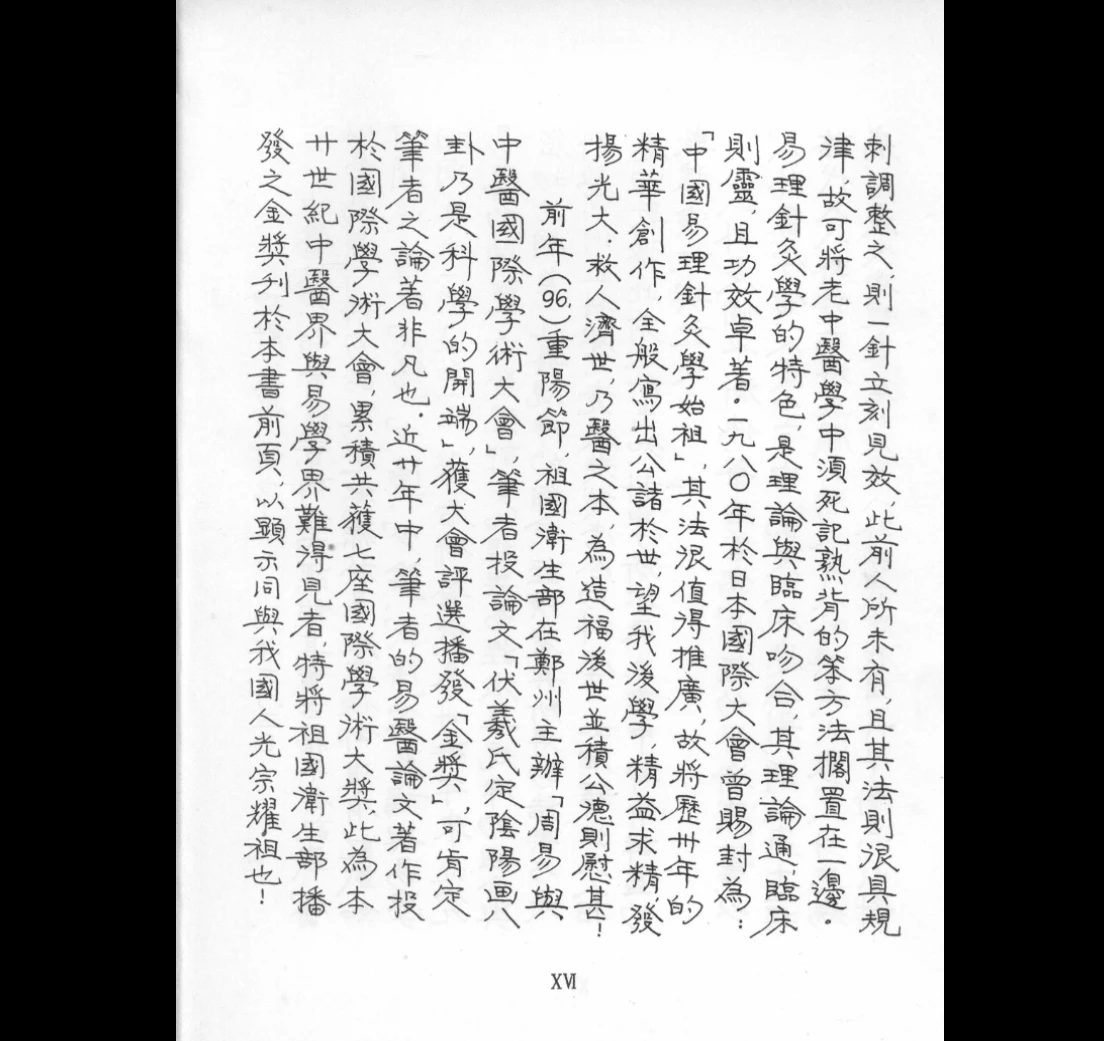 刺調整之,則一針立刻見效,此前人所未有,且其法則很具規
律,故可將老中醫學中須死記熟背的笨方法擱置在一邊。
易理針灸學的特色,是理論與臨床吻合,其理論通,臨床
則靈,且功效卓著。一九八〇年於日本國際大會曾賜封為:
「中國易理針灸學始祖」,其法很值得推廣,故將歷卅年的
精華創作,全般寫出公諸於世,望我後學,精益求精,發
揚光大.救人濟世,乃醫之本,為造福後世並積公德則慰甚!
前年(96.)重陽節,祖國衛生部在鄭州主辦「周易與
中醫國際學術大會」,筆者投論文「伏羲氏定陰陽画八
卦乃是科學的開端」,獲大會評選播發「金獎」,可肯定
筆者之論著非凡也.近廿年中,筆者的易醫論文著作投
於國際學術大會,累積共獲七座國際學術大獎,此為本
廿世紀中醫界與易學界難得見者,特將祖國衛生部播
發之金獎刋於本書前頁,以顯示同與我國人光宗耀祖也!
XVI